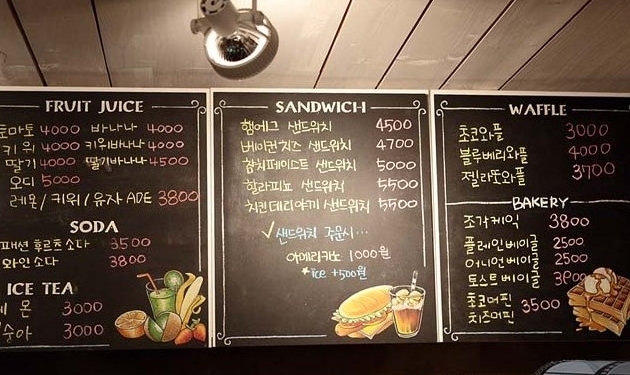 FRUIT JUICE
토마토 4000 바나나 4000
키위 4000 키위바나나 4000
딸기 4000 딸기바나나 4500
오디 5000
레몬/키위/유자 ADE 3800
SODA
패션후르츠소다 3500
와인소다 3800
ICE TEA
레몬 3000
복숭아 3000
SANDWICH
햄에그 샌드위치 4500
베이컨치즈 샌드위치 4700
참치페이스트 샌드위치 5000
할라피뇨 샌드위치 5500
치킨데리야끼 샌드위치 5500
✓샌드위치 주문시...
아메리카노 1000원
*ice +500원
WAFFLE
초코와플 3000
블루베리와플 4000
젤라또와플 3700
BAKERY
조각케익 3800
플레인베이글 2500
어니언베이글 2500
토스트베이글
초코머핀 3500
치즈머핀